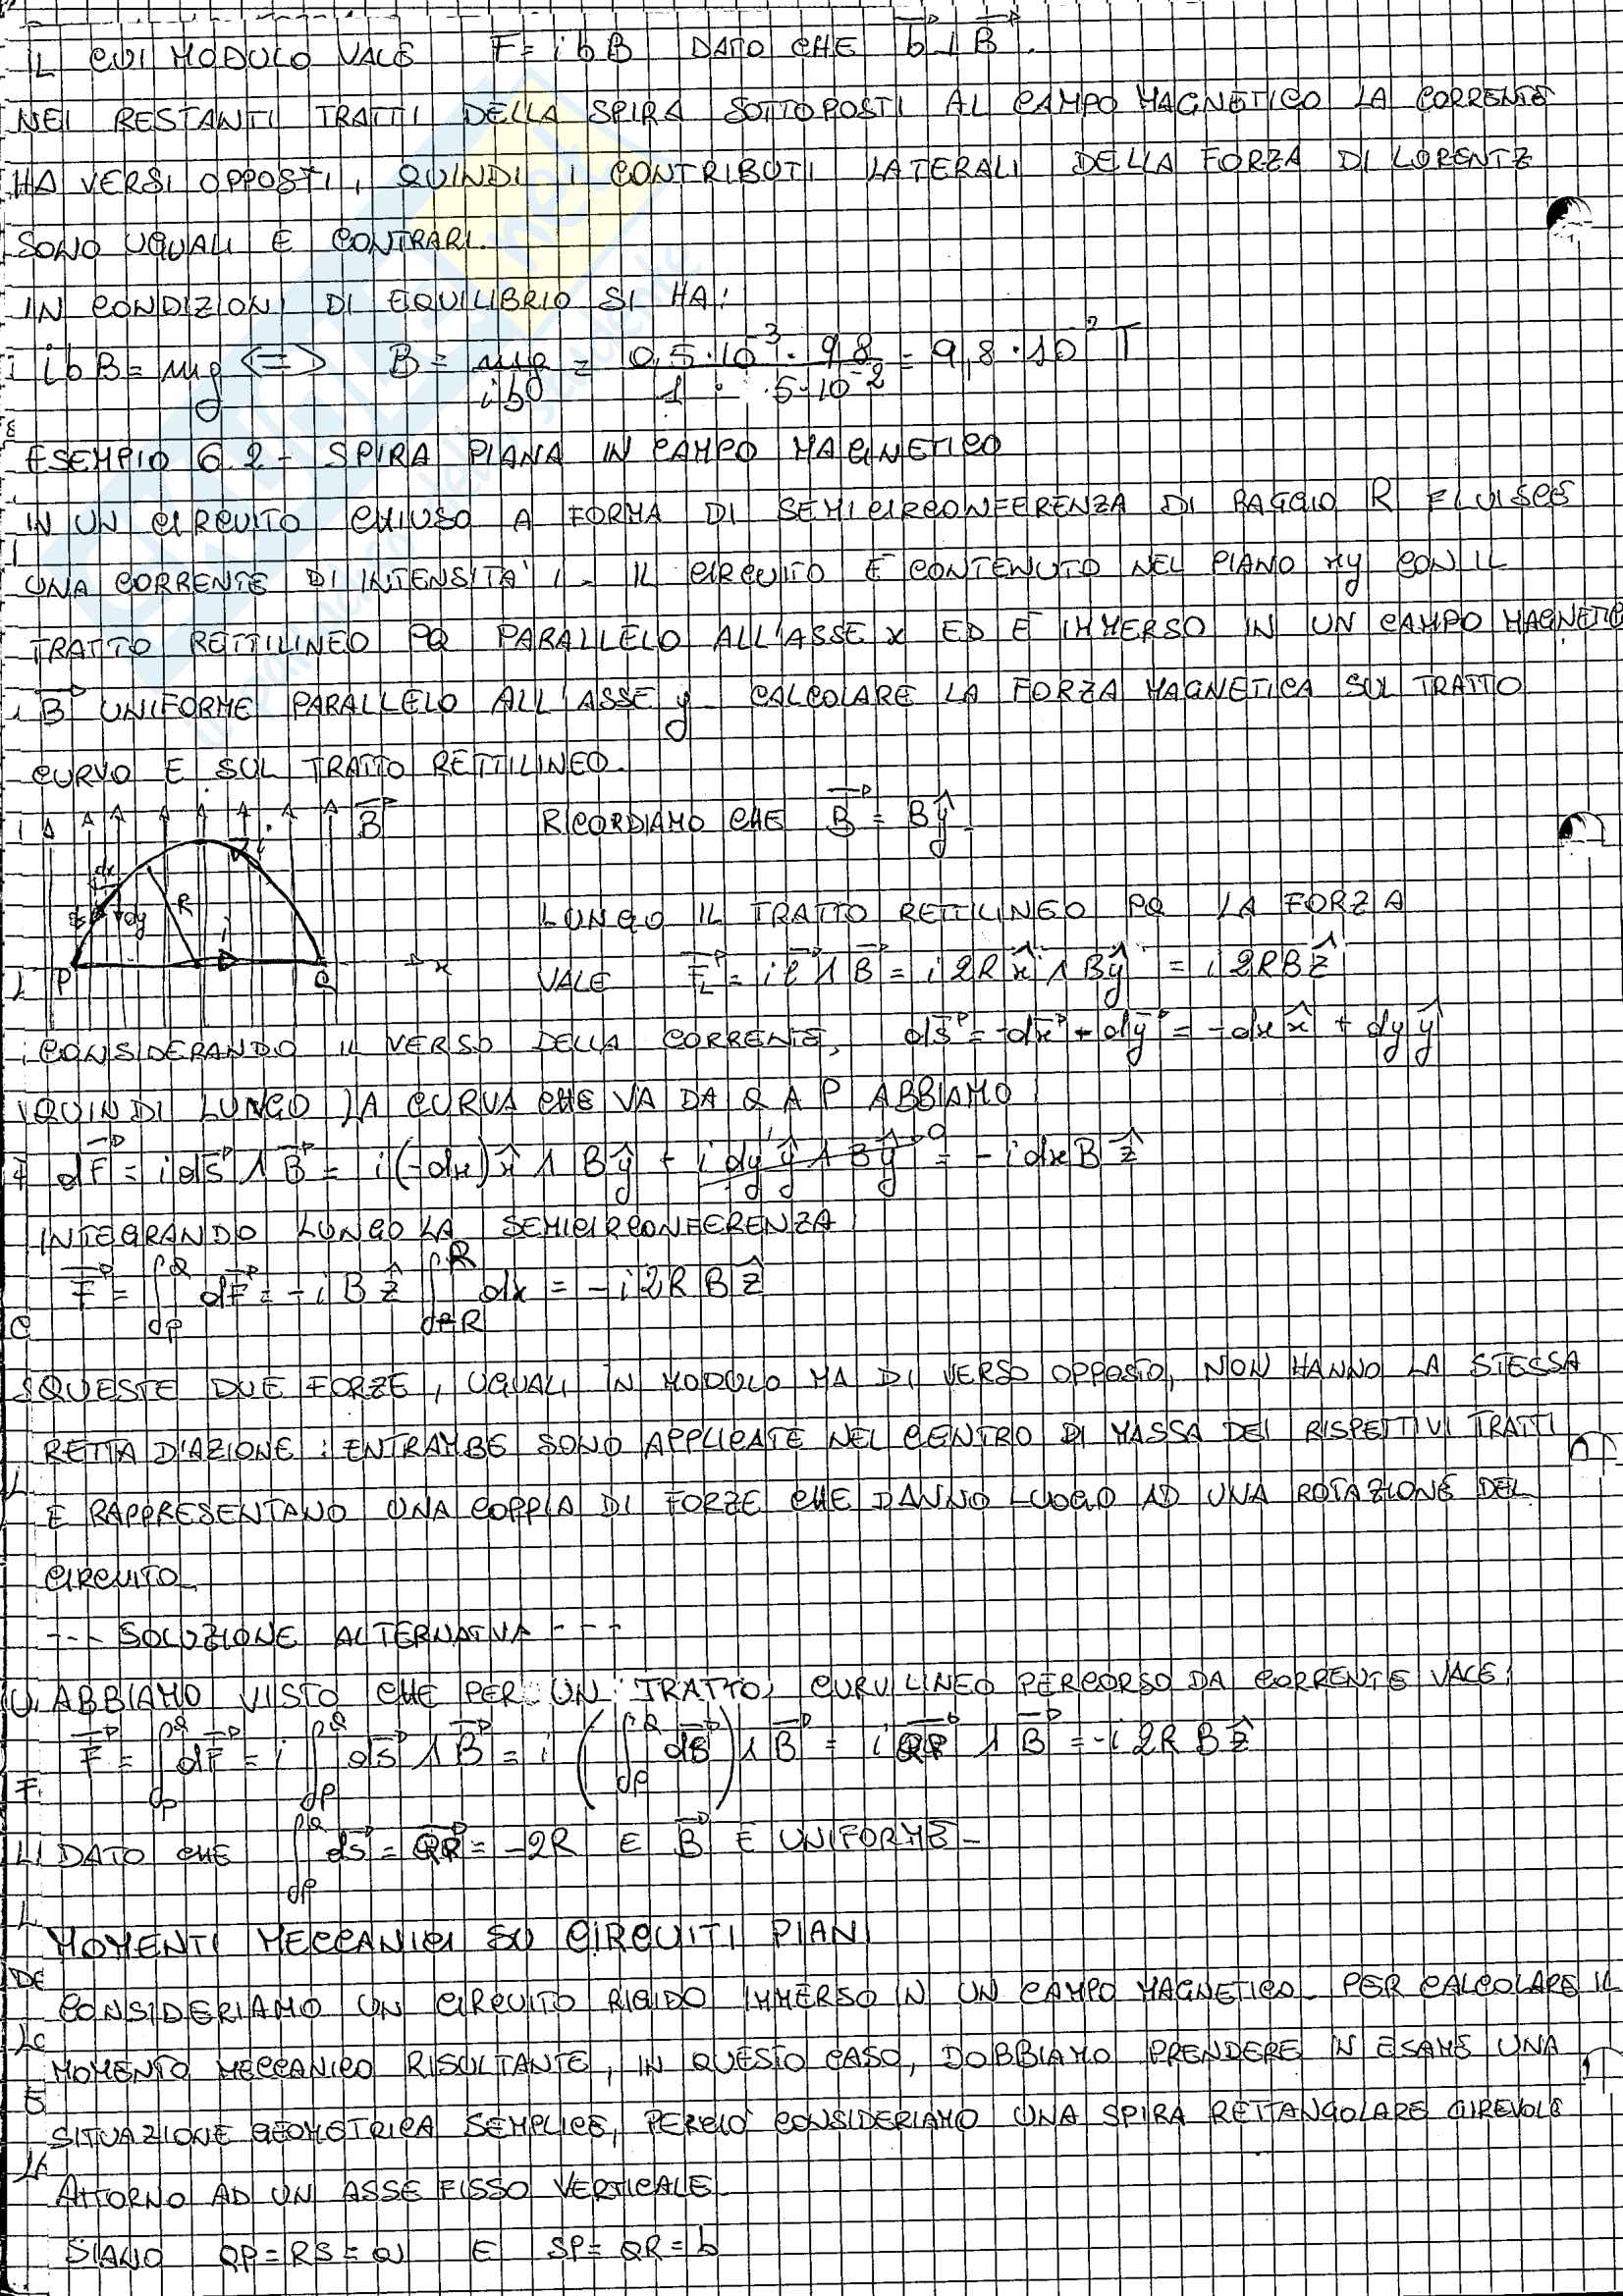 IL CUI MODULO VALE F = i b B DATO CHE b ⊥ B.
NEI RESTANTI TRATTI DELLA SPIRA SOTTOPOSTI AL CAMPO MAGNETICO LA CORRENTE
HA VERSI OPPOSTI, QUINDI I CONTRIBUTI LATERALI DELLA FORZA DI LORENTZ
SONO UGUALI E CONTRARI.
IN CONDIZIONI DI EQUILIBRIO SI HA:
i b B = mg <=> B = mg / ib = 0,5·10^-3 · 9,8 / 1 · 5·10^-2 = 9,8·10^-2 T
ESEMPIO 6.2 - SPIRA PIANA IN CAMPO MAGNETICO
IN UN CIRCUITO CHIUSO A FORMA DI SEMICIRCONFERENZA DI RAGGIO R FLUISCE
UNA CORRENTE DI INTENSITA' i. IL CIRCUITO E' CONTENUTO NEL PIANO xy CON IL
TRATTO RETTILINEO PQ PARALLELO ALL'ASSE x ED E' IMMERSO IN UN CAMPO MAGNETICO
B UNIFORME PARALLELO ALL'ASSE y. CALCOLARE LA FORZA MAGNETICA SUL TRATTO
CURVO E SUL TRATTO RETTILINEO.
B
i
dx
dy
R
i
P
Q
x
RICORDIAMO CHE B = B ŷ.
LUNGO IL TRATTO RETTILINEO PQ LA FORZA
VALE F_L = i l ∧ B = i 2R x̂ ∧ B ŷ = i 2RB ẑ
CONSIDERANDO IL VERSO DELLA CORRENTE, ds = -dx + dy = -dx x̂ + dy ŷ
QUINDI LUNGO LA CURVA CHE VA DA Q A P ABBIAMO:
dF = i ds ∧ B = i(-dx) x̂ ∧ B ŷ + i dy ŷ ∧ B ŷ = - i dx B ẑ
INTEGRANDO LUNGO LA SEMICIRCONFERENZA:
F = ∫_P^Q dF = - i B ẑ ∫_-R^R dx = - i 2R B ẑ
QUESTE DUE FORZE, UGUALI IN MODULO MA DI VERSO OPPOSTO, NON HANNO LA STESSA
RETTA D'AZIONE: ENTRAMBE SONO APPLICATE NEL CENTRO DI MASSA DEI RISPETTIVI TRATTI
E RAPPRESENTANO UNA COPPIA DI FORZE CHE DANNO LUOGO AD UNA ROTAZIONE DEL
CIRCUITO.
--- SOLUZIONE ALTERNATIVA ---
ABBIAMO VISTO CHE PER UN TRATTO CURVILINEO PERCORSO DA CORRENTE VALE:
F = ∫_P^Q dF = i ∫_P^Q ds ∧ B = i (∫_P^Q ds) ∧ B = i QP ∧ B = - i 2R B ẑ
DATO CHE ∫_P^Q ds = QP = -2R E B E' UNIFORME -
MOMENTI MECCANICI SU CIRCUITI PIANI
CONSIDERIAMO UN CIRCUITO RIGIDO IMMERSO IN UN CAMPO MAGNETICO. PER CALCOLARE IL
MOMENTO MECCANICO RISULTANTE, IN QUESTO CASO, DOBBIAMO PRENDERE IN ESAME UNA
SITUAZIONE GEOMETRICA SEMPLICE, PERCIO' CONSIDERIAMO UNA SPIRA RETTANGOLARE GIREVOLE
ATTORNO AD UN ASSE FISSO VERTICALE.
SIANO QP = RS = a E SP = QR = b